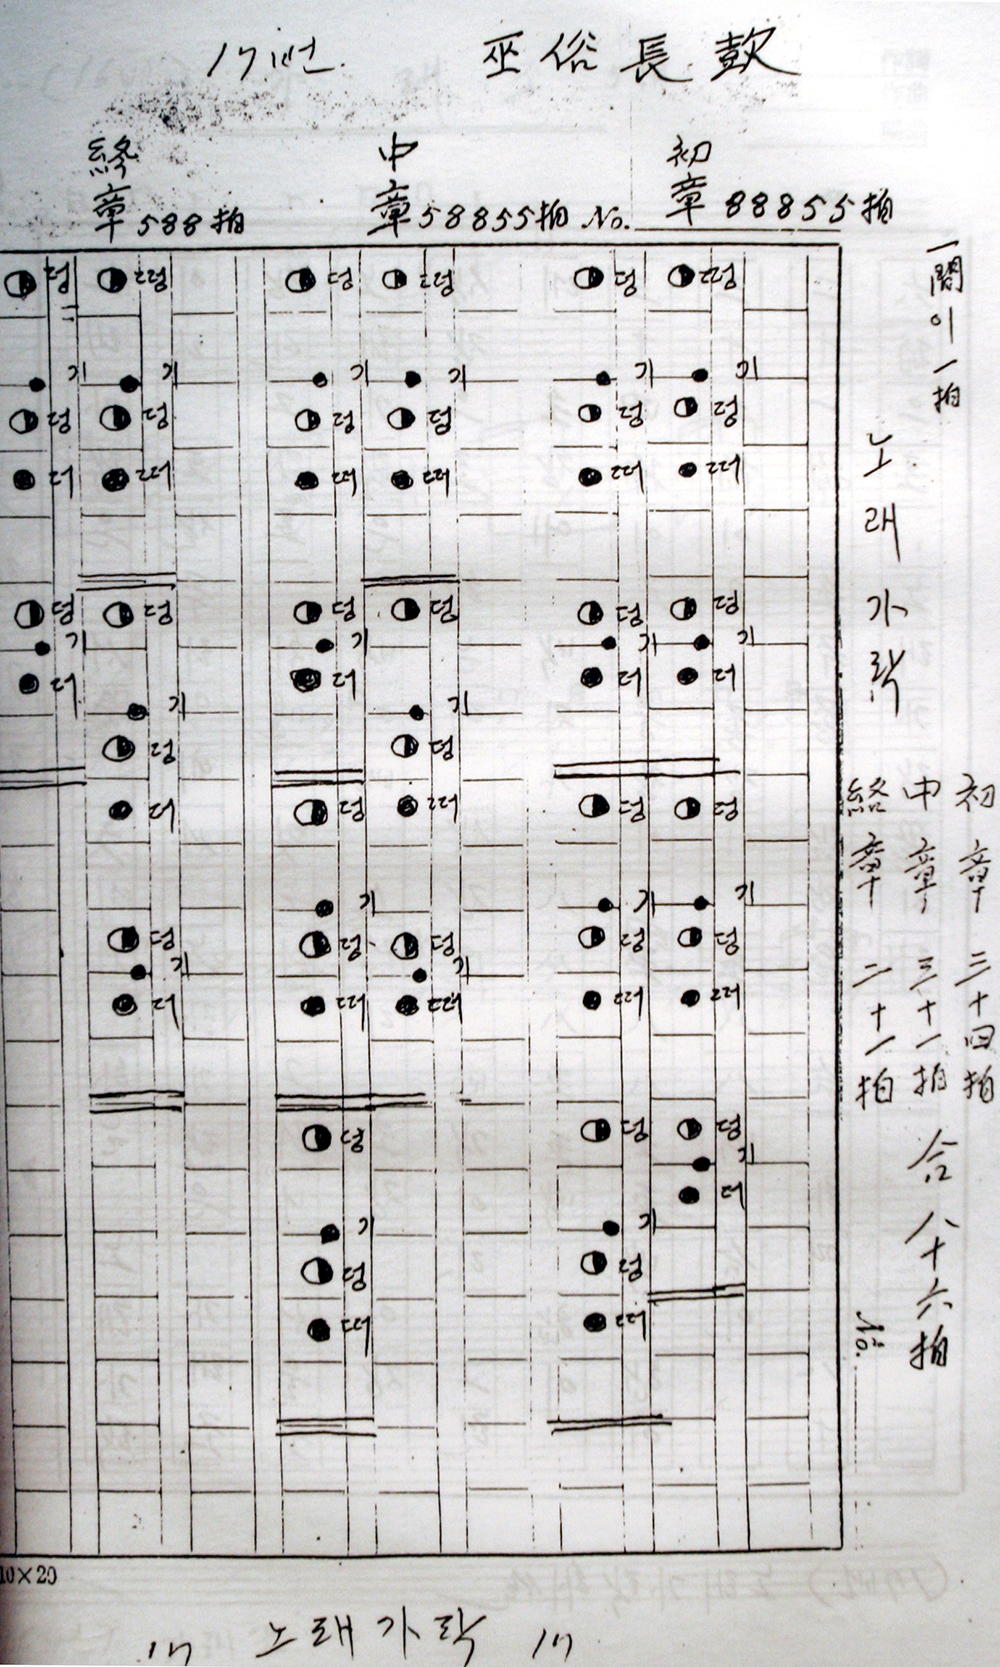 17번. 巫俗長鼓
初章 88855拍
中章 58855拍 No.
終章 588拍
一間이一拍
노래가락
初章 三十四拍
中章 三十一拍
終章 二十一拍
合八十六拍
No.
기 덩 덩 기 더 덩 기 덩 덩 기 더
덩 기 덩 덩 기 더 덩 기 덩 덩 기 덩
기 덩 덩 기 덩 덩 기
덩 기 덩 덩 기 더 덩 기 덩 덩 기 덩
기 덩 덩 기 덩 더 덩 기 더
덩 기 덩 더 덩 기 더
10×20
17 노래가락 17